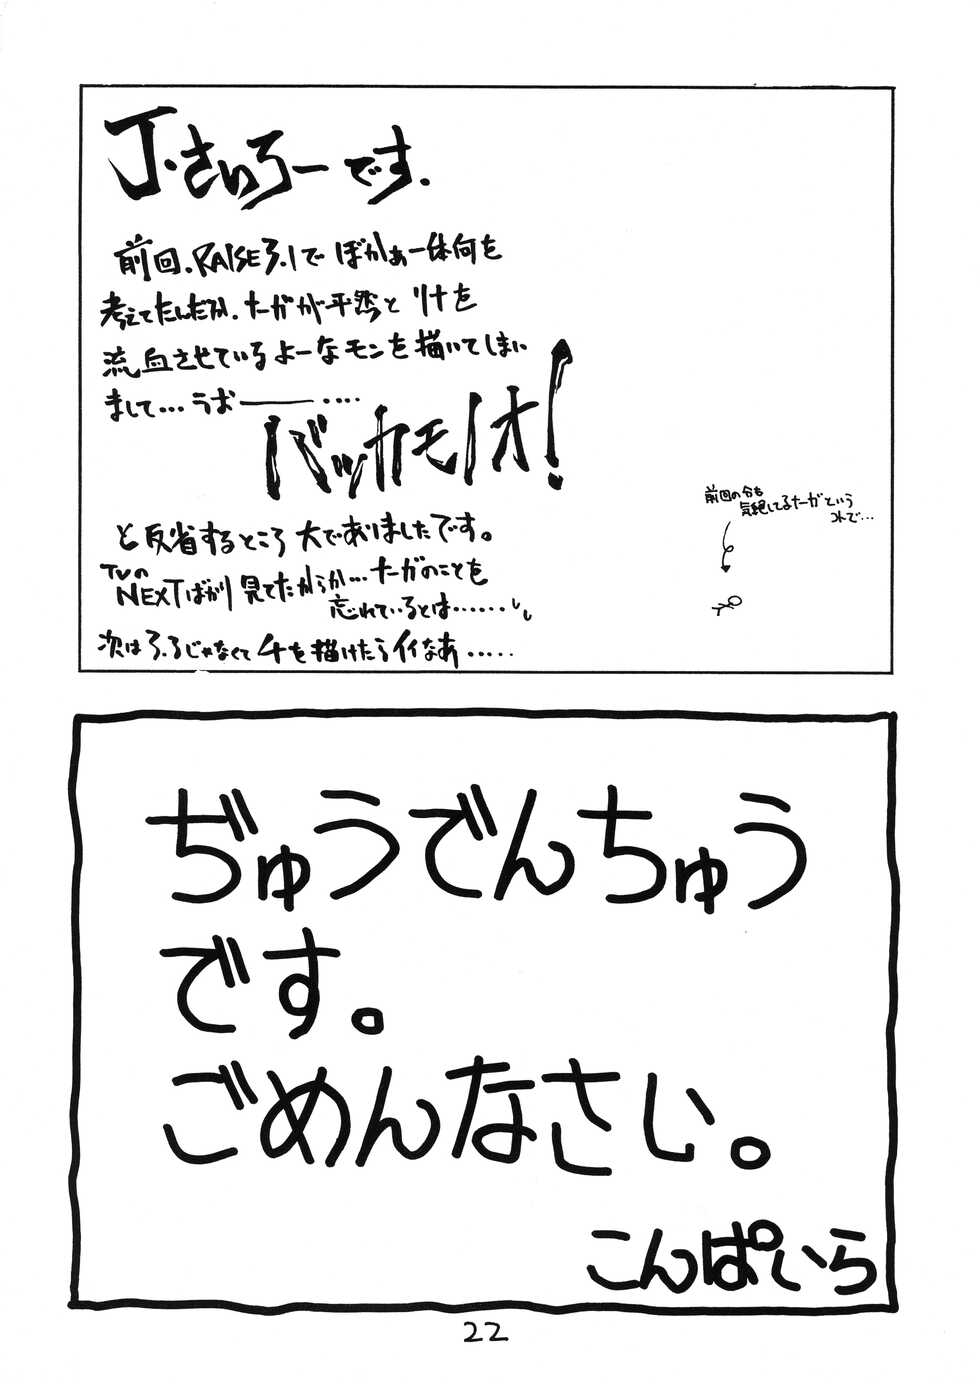 J.さいろーです.
前回.RAISE3.1で ぼかぁ一体何を
考えてたんだか.たーがが平然と リナを
流血させているよーなモンを描いてしまい
まして...うお────.....
バッカモノオ!
と反省するところ大でありましたです。
TVの
NEXTばかり見てたからか...たーがのことを
忘れているとは.......
次は3.3じゃなくて4を描けたらイイなあ.....
前回の分も
気絶してるたーがという
コトで...
ぢゅうでんちゅう
です。
ごめんなさい。
こんぱいら
22